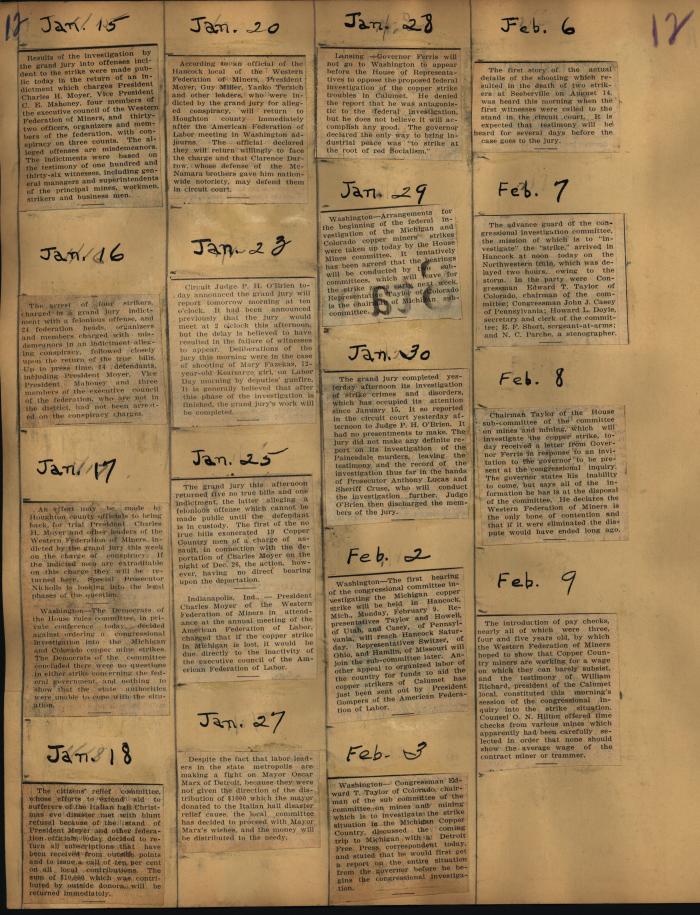 12
Jan. 15
Results of the investigation by
the grand jury into offenses inci-
dent to the strike were made pub-
lic today in the return of an in-
dictment which charges President
Charles H. Moyer, Vice President
C. E. Mahoney, four members of
the executive council of the Western
Federation of Miners, and thirty-
two officers, organizers and mem-
bers of the federation, with con-
spiracy on three counts. The al-
leged offenses are misdemeanors.
The indictments were based on
the testimony of one hundred and
thirty-six witnesses, including gen-
eral managers and superintendents
of the principal mines, workmen,
strikers and business men.
Jan. 16
The arrest of four strikers,
charged in a grand jury indict-
ment with a felonious offense, and
24 federation heads, organizers
and members charged with mis-
demeanors in an indictment alleg-
ing conspiracy, followed closely
upon the return of the true bills.
Up to press time 14 defendants,
including President Moyer, Vice
President Mahoney and three
members of the executive council
of the federation, who are not in
the district, had not been arrest-
ed on the conspiracy charges.
Jan. 17
An effort may be made by
Houghton county officials to bring
back for trial President Charles
H. Moyer and other leaders of the
Western Federation of Miners, in-
dicted by the grand jury this week
on the charge of conspiracy. If
the indicted men are extraditable
on this charge they will be re-
turned here. Special Prosecutor
Nichols is looking into the legal
phases of the question.
Washington—The Democrats of
the House rules committee, in pri-
vate conference today, decided
against ordering a congressional
investigation into the Michigan
and Colorado copper mine strikes.
The Democrats of the committee
concluded there were no questions
in either strike concerning the fed-
eral government, and nothing to
show that the state authorities
were unable to cope with the situ-
ation.
Jan. 18
The citizens' relief committee,
whose efforts to extend aid to
sufferers of the Italian hall Christ-
mas eve disaster met with blunt
refusal because of the stand of
President Moyer and other federa-
tion officials, today decided to re-
turn all subscriptions that have
been received from outside points
and to issue a call of ten per cent
on all local contributions. The
sum of $10,000 which was contri-
buted by outside donors, will be
returned immediately.
Jan. 20
According to an official of the
Hancock local of the Western
Federation of Miners, President
Moyer, Guy Miller, Yanko Terzich
and other leaders, who were in-
dicted by the grand jury for alleg-
ed conspiracy, will return to
Houghton county immediately
after the American Federation of
Labor meeting in Washington ad-
journs. The official declared
they will return willingly to face
the charge and that Clarence Dar-
row, whose defense of the Mc-
Namara brothers gave him nation-
wide notoriety, may defend them
in circuit court.
Jan. 23
Circuit Judge P. H. O'Brien to-
day announced the grand jury will
report tomorrow morning at ten
o'clock. It had been announced
previously that the jury would
meet at 2 o'clock this afternoon,
but the delay is believed to have
resulted in the failure of witnesses
to appear. Deliberations of the
jury this morning were in the case
of shooting of Mary Fazekas, 12-
year-old Kearsarge girl, on Labor
Day morning by deputies' gunfire.
It is generally believed that after
this phase of the investigation is
finished, the grand jury's work will
be completed.
Jan. 25
The grand jury this afternoon
returned five no true bills and one
indictment, the latter alleging a
felonious offense which cannot be
made public until the defendant
is in custody. The first of the no
true bills exonerated 19 Copper
Country men of a charge of as-
sault, in connection with the de-
portation of Charles Moyer on the
night of Dec. 26, the action, how-
ever, having no direct bearing
upon the deportation.
Indianapolis, Ind. — President
Charles Moyer of the Western
Federation of Miners in attend-
ance at the annual meeting of the
American Federation of Labor,
charged that if the copper strike
in Michigan is lost, it would be
due directly to the inactivity of
the executive council of the Am-
erican Federation of Labor.
Jan. 27
Despite the fact that labor lead-
ers in the state metropolis are
making a fight on Mayor Oscar
Marx of Detroit, because they were
not given the direction of the dis-
tribution of $1000 which the mayor
donated to the Italian hall disaster
relief cause, the local committee
has decided to proceed with Mayor
Marx's wishes, and the money will
be distributed to the needy.
Jan. 28
Lansing —Governor Ferris will
not go to Washington to appear
before the House of Representa-
tives to oppose the proposed federal
investigation of the copper strike
troubles in Calumet. He denied
the report that he was antagonis-
tic to the federal investigation,
but he does not believe it will ac-
complish any good. The governor
declared the only way to bring in-
dustrial peace was "to strike at
the root of red Socialism."
Jan. 29
Washington—Arrangements for
the beginning of the federal in-
vestigation of the Michigan and
Colorado copper miners' strikes
were taken up today by the House
Mines committee. It tentatively
has been agreed that the hearings
will be conducted by sub-
committees, which will leave for
the strike next week.
Representative Taylor of Colorado
is the chairman of Michigan sub-
committee.
Jan. 30
The grand jury completed yes-
terday afternoon its investigation
of strike crimes and disorders,
which has occupied its attention
since January 15. It so reported
in the circuit court yesterday af-
ternoon to Judge P. H. O'Brien. It
had no presentments to make. The
jury did not make any definite re-
port on its investigation of the
Painesdale murders, leaving the
testimony, and the record of the
investigation thus far in the hands
of Prosecutor Anthony Lucas and
Sheriff Cruse, who will conduct
the investigation further. Judge
O'Brien then discharged the mem-
bers of the jury.
Feb. 2
Washington—The first hearing
of the congressional committee in-
vestigating the Michigan copper
strike will be held in Hancock,
Mich., Monday, February 9. Re-
presentatives Taylor and Howell,
of Utah, and Casey, of Pennsyl-
vania, will reach Hancock Satur-
day. Representatives Switzer, of
Ohio, and Hamlin, of Missouri will
join the sub-committee later. An-
other appeal to organized labor of
the country for funds to aid the
copper strikers of Calumet has
just been sent out by President
Gompers of the American Federa-
tion of Labor.
Feb. 3
Washington— Congressman Ed-
ward T. Taylor of Colorado, chair-
man of the sub committee of the
committee on mines and mining
which is to investigate the strike
situation in the Michigan Copper
Country, discussed the coming
trip to Michigan with a Detroit
Free Press correspondent today,
and stated that he would first get
a report on the entire situation
from the governor before he be-
gins the congressional investiga-
tion.
Feb. 6
The first story of the actual
details of the shooting which re-
sulted in the death of two strik-
ers at Seeberville on August 14,
was heard this morning when the
first witnesses were called to the
stand in the circuit court. It is
expected that testimony will be
heard for several days before the
case goes to the jury.
Feb. 7
The advance guard of the con-
gressional investigation committee,
the mission of which is to "in-
vestigate" the strike, arrived in
Hancock at noon today on the
Northwestern train, which was de-
layed two hours, owing to the
storm. In the party were Con-
gressman Edward T. Taylor of
Colorado, chairman of the com-
mittee; Congressman John J. Casey
of Pennsylvania; Howard L. Doyle,
secretary and clerk of the commit-
tee; E. F. Short, sergeant-at-arms;
and N. C. Parche, a stenographer.
Feb. 8
Chairman Taylor of the House
sub-committee of the committee
on mines and mining, which will
investigate the copper strike, to-
day received a letter from Gover-
nor Ferris in response to an invi-
tation to the governor to be pre-
sent at the congressional inquiry.
The governor states his inability
to come, but says all of the in-
formation he has is at the disposal
of the committee. He declares the
Western Federation of Miners is
the only bone of contention and
that if it were eliminated the dis-
pute would have ended long ago.
Feb. 9
The introduction of pay checks,
nearly all of which were three,
four and five years old, by which
the Western Federation of Miners
hoped to show that Copper Coun-
try miners are working for a wage
on which they can barely subsist,
and the testimony of William
Richard, president of the Calumet
local, constituted this morning's
session of the congressional in-
quiry into the strike situation.
Counsel O. N. Hilton offered time
checks from various mines which
apparently had been carefully se-
lected in order that none should
show the average wage of the
contract miner or trammer.
12